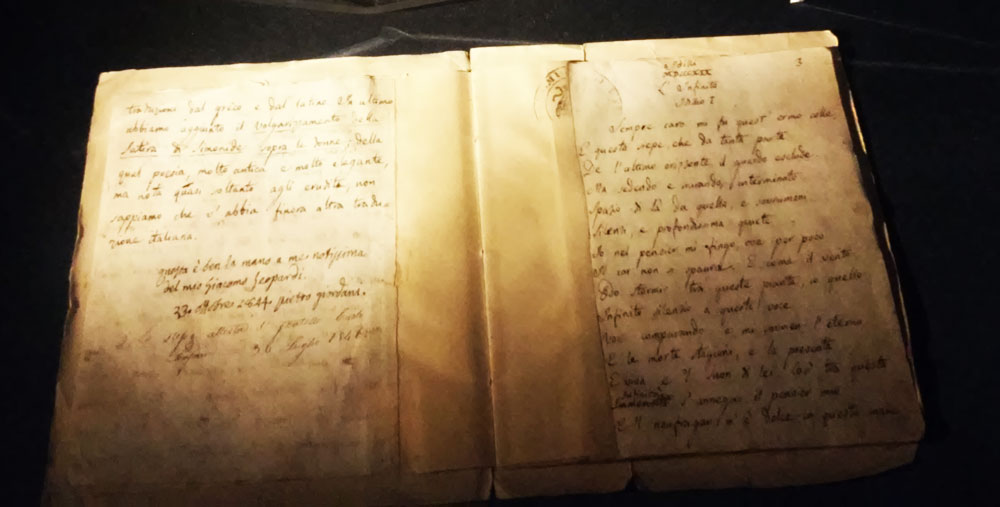 traduzione dal greco e dal latino. In ultimo
abbiamo aggiunto il volgarizzamento della
Satira di Simonide sopra le donne; della
qual poesia, molto antica e molto elegante,
ma nota quasi soltanto agli eruditi, non
sappiamo che v'abbia finora altra tradu-
zione italiana.
questa è ben la mano a me notissima
del mio Giacomo Leopardi.
23. ottobre 1844. pietro giordani.
26 luglio
3
L'Infinito
Idillio I
Sempre caro mi fu quest'ermo colle,
E questa siepe, che da tanta parte
De l'ultimo orizzonte il guardo esclude.
Ma sedendo e mirando, interminato
Spazio di là da quella, e sovrumani
Silenzi, e profondissima quiete
Io nel pensier mi fingo, ove per poco
Il cor non si spaura. E come il vento
Odo stormir tra queste piante, io quello
Infinito silenzio a questa voce
Vo comparando: e mi sovvien l'eterno,
E le morte stagioni, e la presente
E viva, e 'l suon di lei. Così tra questa
Immensità s'annega il pensier mio,
E 'l naufragar m'è dolce in questo mare.